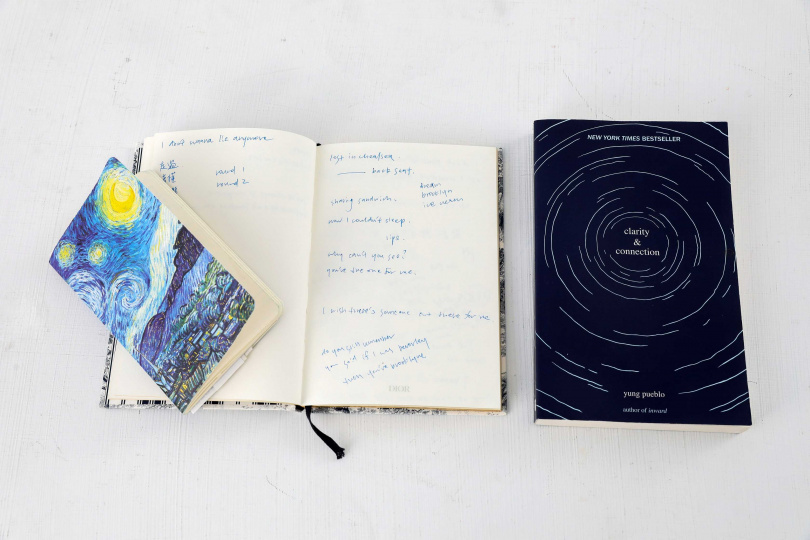 I don't wanna lie anymore
round 1
round 2
lost in chelsea
back seat.
sharing sandwich.
dream
brooklyn
ice cream
and I couldn't sleep.
lips.
why can't you see?
you're the one for me.
I wish there's someone out there for me
do you still remember
you said if I was
then you're
DIOR
NEW YORK TIMES BESTSELLER
clarity
&
connection
yung pueblo
author of inward